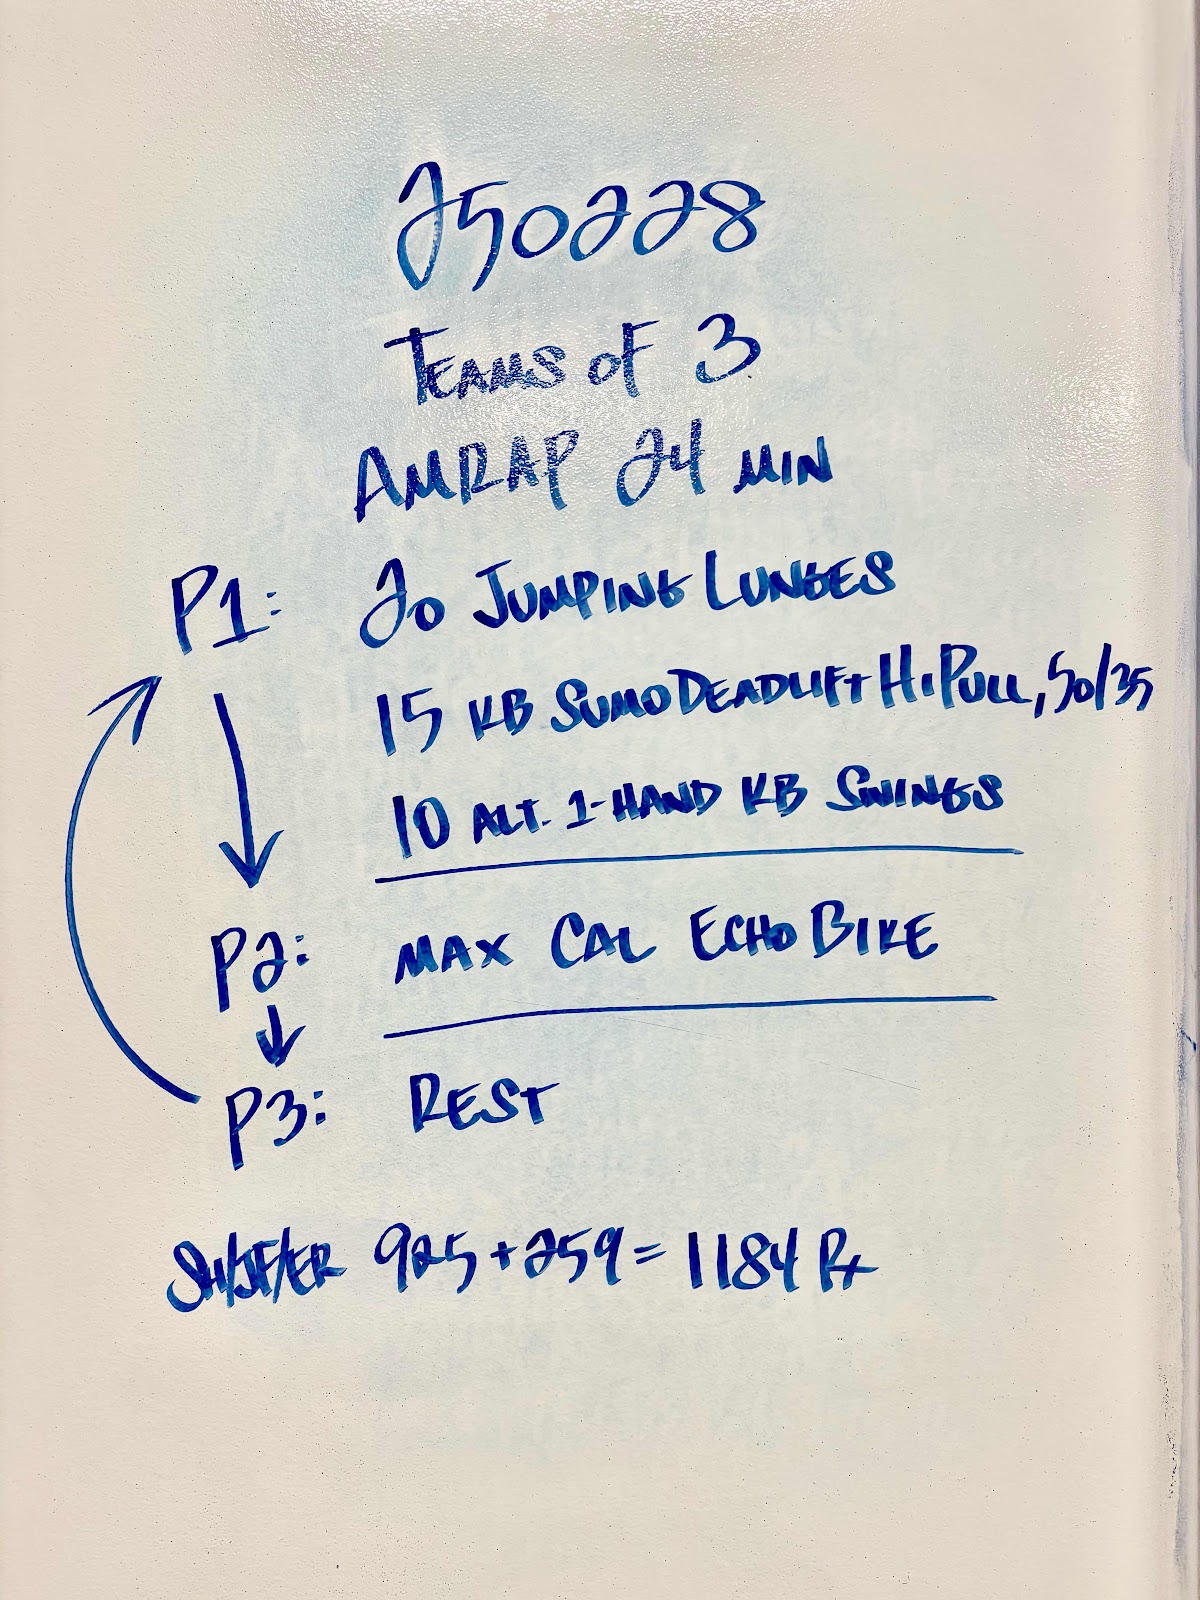 250228
TEAMS OF 3
AMRAP 24 MIN
P1: 20 JUMPING LUNGES
15 KB SUMO DEADLIFT HI PULL, 50/35
10 ALT. 1-HAND KB SWINGS
P2: MAX CAL ECHO BIKE
P3: REST
SH/JF/ER 925 + 259 = 1184 Rx